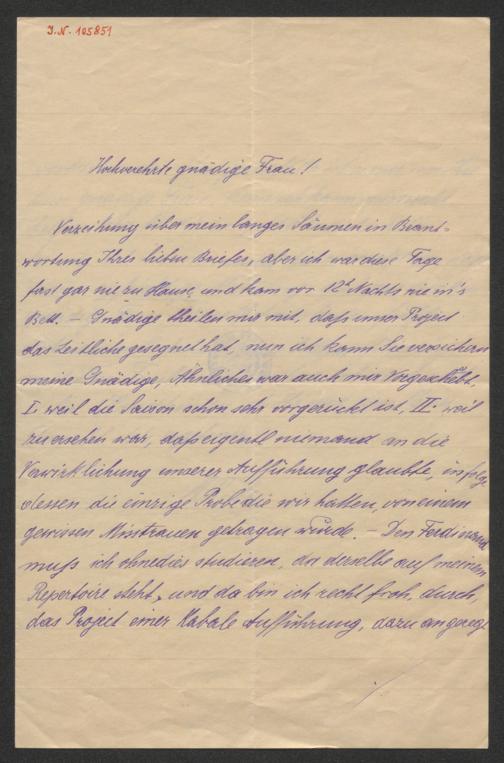 J.N. 105851
Hochverehrte gnädige Frau!
Verzeihung über mein langes Säumen in Beant-
wortung Ihres lieben Briefes, aber ich war diese Tage
fast gar nie zu Hause, und kam vor 12h Nachts nie in's
Bett. – Gnädige theilen mir mit, daß unser Project
das Zeitliche gesegnet hat, nun ich kann Sie versichern
meine Gnädige, Ähnliches war auch mir Vorgeschwebt.
I. weil die Saison schon sehr vorgerückt ist, II. weil
zu ersehen war, daß eigentl niemand an die
Verwirklichung unserer Aufführung glaubte, infolge
dessen die einzige Probe die wir hatten, von einem
gewissen Misstrauen getragen wurde. – Den Ferdinand
muß ich ohnedies studieren, da derselbe auf meinem
Repertoire steht, und da bin ich recht froh, durch,
das Project einer Kabale Aufführung, dazu angeregt